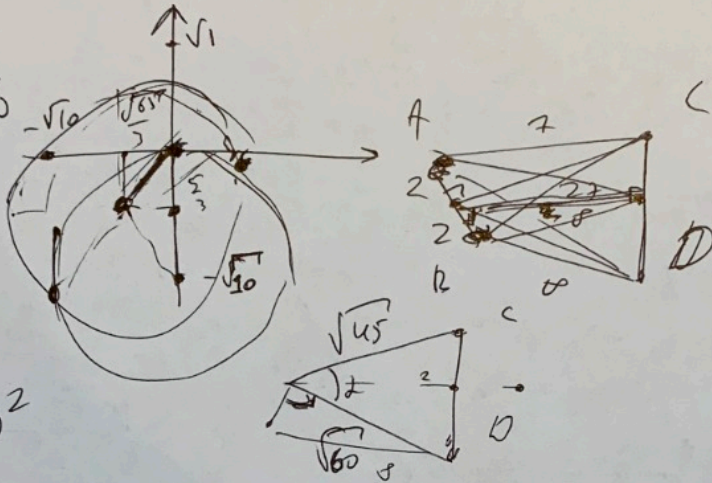 √1
-√10
√65
3
5
3
-√10
A
7
C
2
2
8
B
8
D
√45
C
2
D
√60
8
2